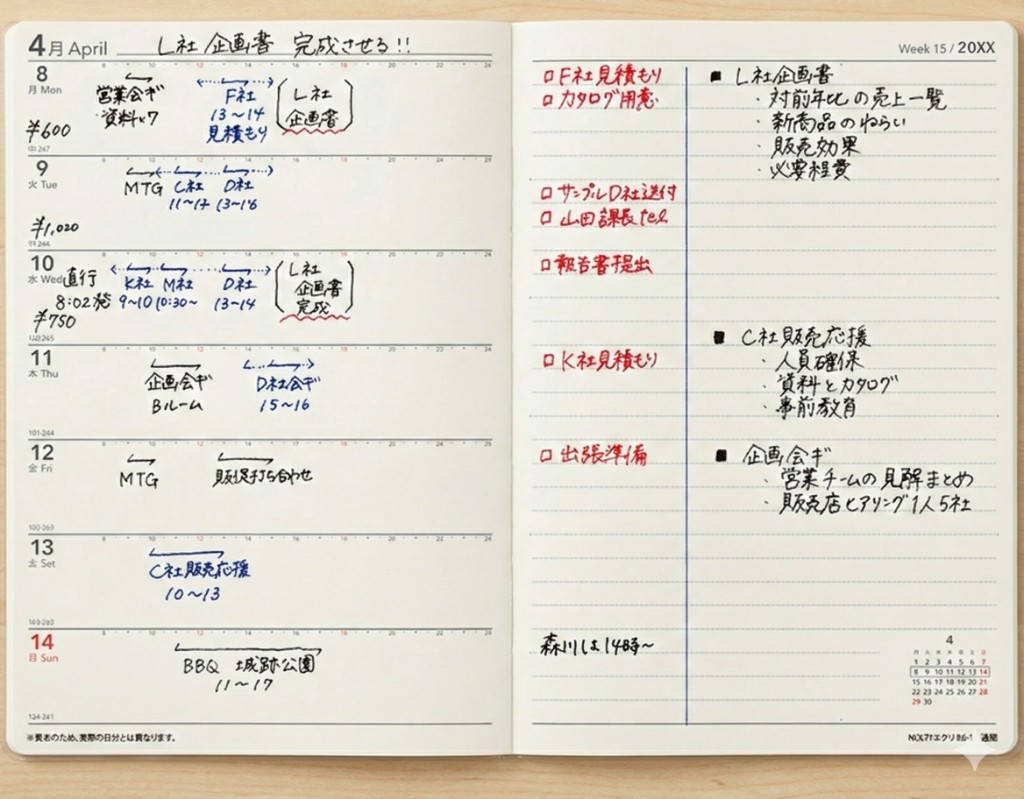 4月 April L社 企画書 完成させる!!
8
月 Mon
営業会ギ
資料×7
¥600
F社
13〜14
見積もり
L社
企画書
9
火 Tue
MTG C社 D社
13〜16
¥1,020
10
水 Wed
直行
8:02発
¥750
K社 M社 D社
9〜10 10:30〜 13〜14
L社
企画書
完成
11
木 Thu
企画会ギ
Bルーム
D社会ギ
15〜16
101-244
12
金 Fri
MTG 販促打ち合わせ
13
土 Sat
C社販売応援
10〜13
14
日 Sun
BBQ 城跡公園
11〜17
124-241
Week 15 / 20XX
□ F社見積もり
□ カタログ用意
□ サンプルD社送付
□ 山田課長tel
□ 報告書提出
□ K社見積もり
□ 出張準備
森川は14時〜
■ L社企画書
・対前年比の売上一覧
・新商品のねらい
・販売効果
・必要経費
■ C社販売応援
・人員確保
・資料とカタログ
・事前教育
■ 企画会ギ
・営業チームの見解まとめ
・販売店ヒアリング1人5社
4
月 火 水 木 金 土 日
1 2 3 4 5 6 7
8 9 10 11 12 13 14
15 16 17 18 19 20 21
22 23 24 25 26 27 28
29 30